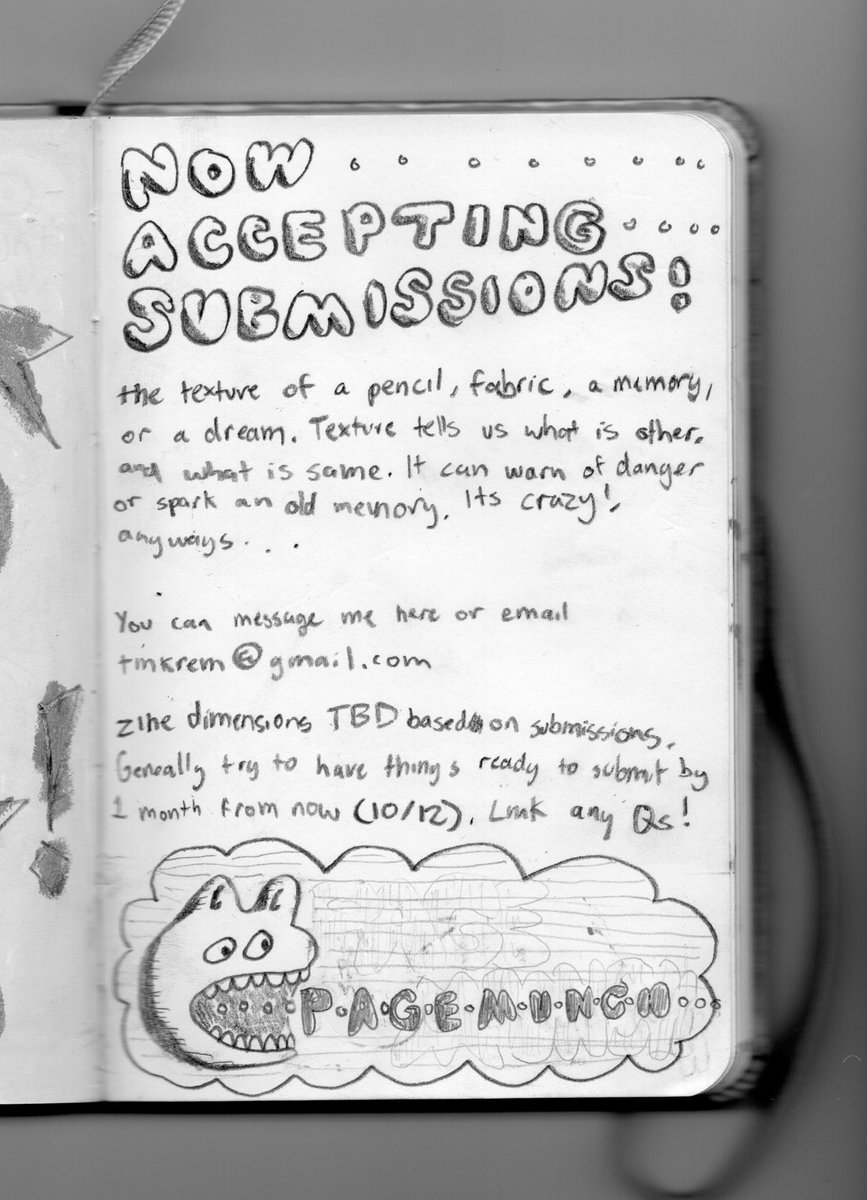 NOW
ACCEPTING
SUBMISSIONS!
the texture of a pencil, fabric, a memory,
or a dream. Texture tells us what is other,
and what is same. It can warn of danger
or spark an old memory. Its crazy!
anyways...
You can message me here or email
tmkrem@gmail.com
zine dimensions TBD based on submissions.
Geneally try to have things ready to submit by
1 month from now (10/12). Lmk any Qs!
P.A.G.E.M.U.N.C.H...